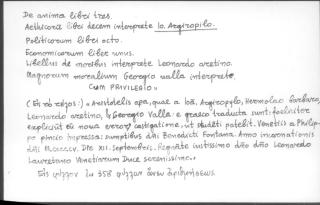 De anima libri tres.
Aethicorū libri decem interprete Io. Argiropilo.
Politicorum libri octo.
Economicorum liber unus.
Libellus de moribus interprete Leonardo aretino.
Magnorum moralium Georgio valla interprete.
CUM PRIVILEGIO
: « Aristotelis opa, quae a Ioā. Argiropylo, Hermolao barbaro,
Leonardo aretino, Georgio Valla: e graeco traducta sunt: foeliciter
expliciūt cū noua errorū castigatione, ut studēti patebit. Venetiis a Philip-
po pincio impressa: sumptibus dn̄i Benedicti Fontana. Anno incarnationis
dn̄i Mccccv. Die XII. Septembris. Regnāte iustissimo dn̄o dn̄o Leonardo
Lauretano Venetiarum Duce serenissimo.
Εἰς φύλλον 358 φύλλα ἄνευ ἀριθμήσεως